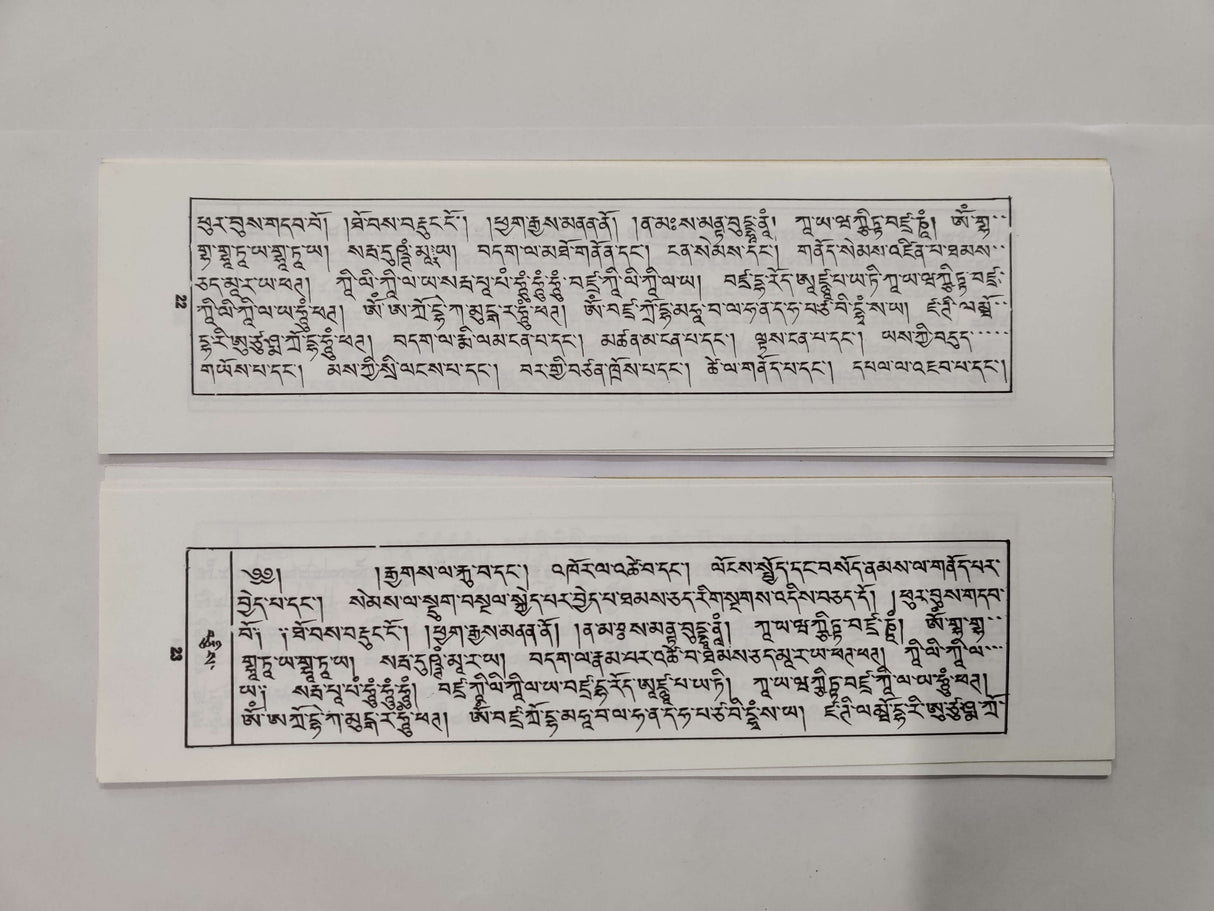 ཕུར་བུས་གདབ་བོ། །ཐོ་བས་བརྡུང་ངོ་། །ཕྱག་རྒྱས་མནན་ནོ། །ན་མཿ་ས་མནྟ་བུདྡྷཱ་ནཱཾ། ཀཱ་ཡ་ཝཱཀྐིཏྟ་བཛྲ་ཎཱཾ། ཨོཾ་གྷ་
གྷ་གྷཱ་ཏཱ་ཡ་གྷཱ་ཏཱ་ཡ། སརྦ་དུཥྚཾ་མཱ་ར་ཡ། བདག་ལ་མཐོ་གནོན་དང་། ངན་སེམས་དང་། གནོད་སེམས་འཛིན་པ་ཐམས་
ཅད་མཱ་ར་ཡ་ཕཊ། ཀཱི་ལི་ཀཱི་ལ་ཡ་སརྦ་པཱ་པཾ་ཧཱུྃ་ཧཱུྃ་ཧཱུྃ་ བཛྲ་ཀཱི་ལི་ཀཱི་ལ་ཡ། བཛྲ་དྷ་རོད་ཨཱཛྙཱ་པ་ཡ་ཏི་ཀཱ་ཡ་ཝཱཀྐིཏྟ་བཛྲ་
ཀཱི་ལི་ཀཱི་ལ་ཡ་ཧཱུྃ་ཕཊ། ཨོཾ་ཨ་ཀྲོ་དྷེ་ཀ་མུདྒ་ར་ཧཱུྃ་ཕཊ། ཨོཾ་བཛྲ་ཀྲོ་དྷ་མཧཱ་བ་ལ་ཧ་ན་ད་ཧ་པ་ཙ་བི་དྷྭཾ་ས་ཡ། ཛ་ཊི་ལ་མྦོ་
དྷ་རི་ཨུ་ཙྪུཥྨ་ཀྲོ་དྷ་ཧཱུྃ་ཕཊ། བདག་ལ་རྨི་ལམ་ངན་པ་དང་། མཚན་མ་ངན་པ་དང་། ལྟས་ངན་པ་དང་། ཡས་ཀྱི་བདུད་
གཡོས་པ་དང་། མས་ཀྱི་སྲི་ལངས་པ་དང་། བར་གྱི་བཙན་ཁྲོས་པ་དང་། ཚེ་ལ་གནོད་པ་དང་། དཔལ་ལ་འཇབ་པ་དང་།
22
༄༅། །རྒྱགས་ལ་རྐུ་བ་དང་། འཁོར་ལ་འཚེ་བ་དང་། ལོངས་སྤྱོད་དང་བསོད་ནམས་ལ་གནོད་པར་
བྱེད་པ་དང་། སེམས་ལ་སྡུག་བསྔལ་སྐྱེད་པར་བྱེད་པ་ཐམས་ཅད་རིག་སྔགས་འདིས་བཅད་དོ། །ཕུར་བུས་གདབ་
བོ་། །ཐོ་བས་བརྡུང་ངོ་། །ཕྱག་རྒྱས་མནན་ནོ། །ན་མཿ་ས་མནྟ་བུདྡྷཱ་ནཱཾ། ཀཱ་ཡ་ཝཱཀྐིཏྟ་བཛྲ་ཎཱཾ། ཨོཾ་གྷ་གྷ་
གྷཱ་ཏཱ་ཡ་གྷཱ་ཏཱ་ཡ། སརྦ་དུཥྚཾ་མཱ་ར་ཡ། བདག་ལ་རྣམ་པར་འཚེ་བ་ཐམས་ཅད་མཱ་ར་ཡ་ཕཊ་ཕཊ། ཀཱི་ལི་ཀཱི་ལ་
ཡ། སརྦ་པཱ་པཾ་ཧཱུྃ་ཧཱུྃ་ཧཱུྃ། བཛྲ་ཀཱི་ལི་ཀཱི་ལ་ཡ་བཛྲ་དྷ་རོད་ཨཱཛྙཱ་པ་ཡ་ཏི། ཀཱ་ཡ་ཝཱཀྐིཏྟ་བཛྲ་ཀཱི་ལ་ཡ་ཧཱུྃ་ཕཊ།
ཨོཾ་ཨ་ཀྲོ་དྷེ་ཀ་མུདྒ་ར་ཧཱུྃ་ཕཊ། ཨོཾ་བཛྲ་ཀྲོ་དྷ་མཧཱ་བ་ལ་ཧ་ན་ད་ཧ་པ་ཙ་བི་དྷྭཾ་ས་ཡ། ཛ་ཊི་ལ་མྦོ་དྷ་རི་ཨུ་ཙྪུཥྨ་ཀྲོ་
23